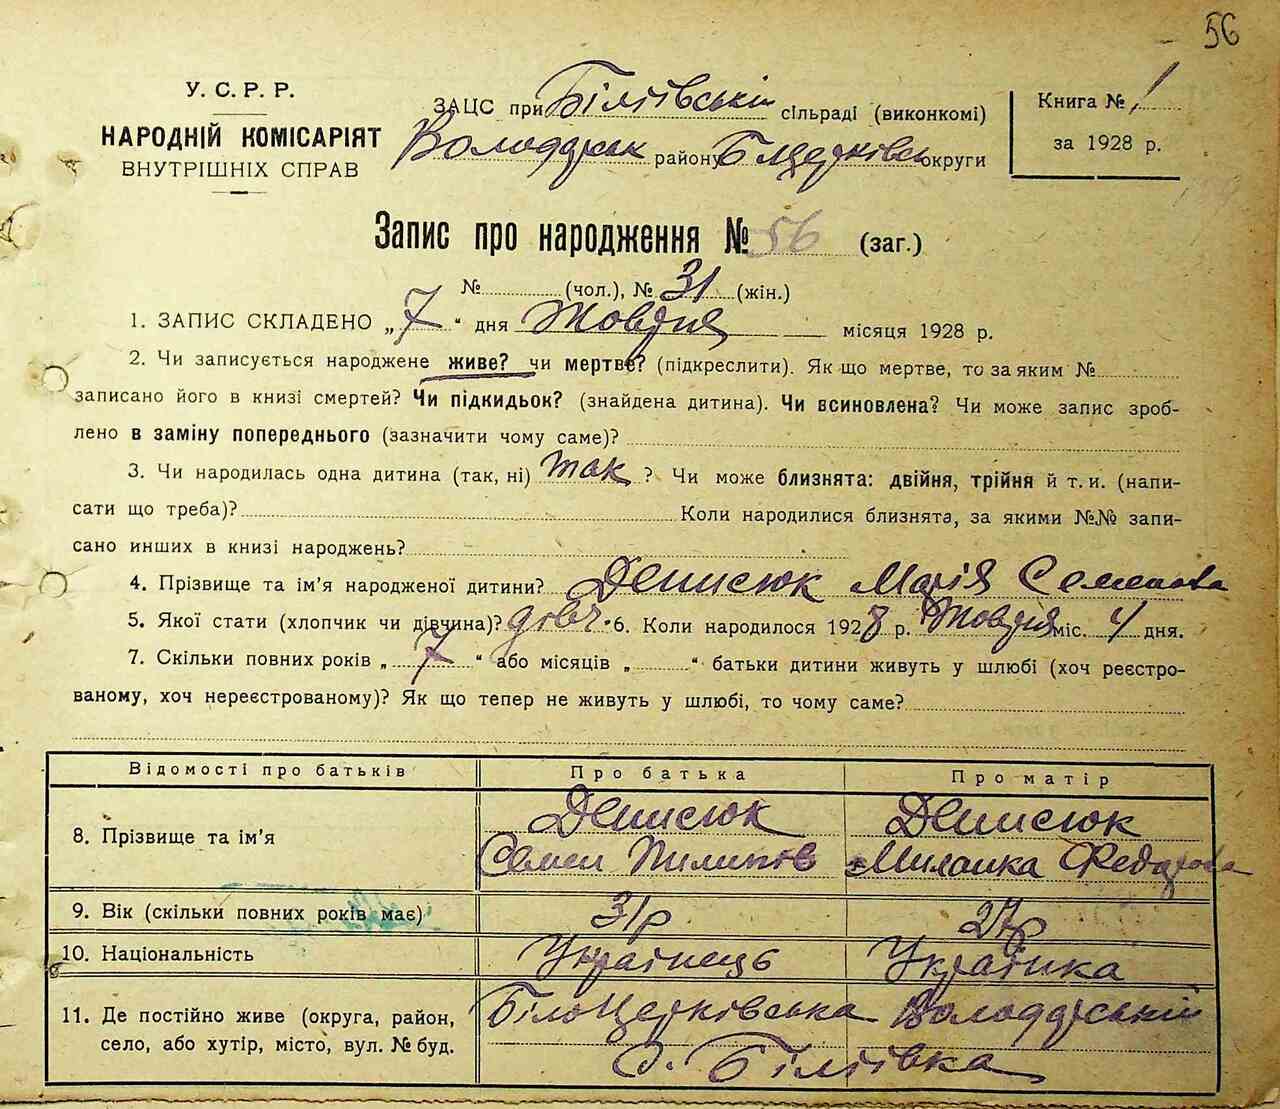 56
У. С. Р. Р.
НАРОДНІЙ КОМІСАРІЯТ
ВНУТРІШНІХ СПРАВ
ЗАЦС при Біліївській сільраді (виконкомі)
Володарськ району Б Церківськ округи
Книга № 1
за 1928 р.
Запис про народження № 56 (заг.)
№ (чол.), № 31 (жін.)
1. ЗАПИС СКЛАДЕНО „7“ дня Жовтня місяця 1928 р.
2. Чи записується народжене живе? чи мертве? (підкреслити). Як що мертве, то за яким №
записано його в книзі смертей? Чи підкидьок? (знайдена дитина). Чи всиновлена? Чи може запис зроб-
лено в заміну попереднього (зазначити чому саме)?
3. Чи народилась одна дитина (так, ні) так ? Чи може близнята: двійня, трійня й т. и. (напи-
сати що треба)? Коли народилися близнята, за якими №№ запи-
сано инших в книзі народжень?
4. Прізвище та ім’я народженої дитини? Денисюк Марія Семенова
5. Якої стати (хлопчик чи дівчина)? дівч. 6. Коли народилося 1928 р. Жовтня міс. 4 дня.
7. Скільки повних років „7“ або місяців „ “ батьки дитини живуть у шлюбі (хоч реєстро-
ваному, хоч нереєстрованому)? Як що тепер не живуть у шлюбі, то чому саме?
Відомості про батьків Про батька Про матір
8. Прізвище та ім’я Денисюк Семен Пилипов Денисюк Миланка Федорова
9. Вік (скільки повних років має) 31р 27р
10. Національність Українець Українка
11. Де постійно живе (округа, район, Білоцерківська Володарський
село, або хутір, місто, вул. № буд. с. Біліївка